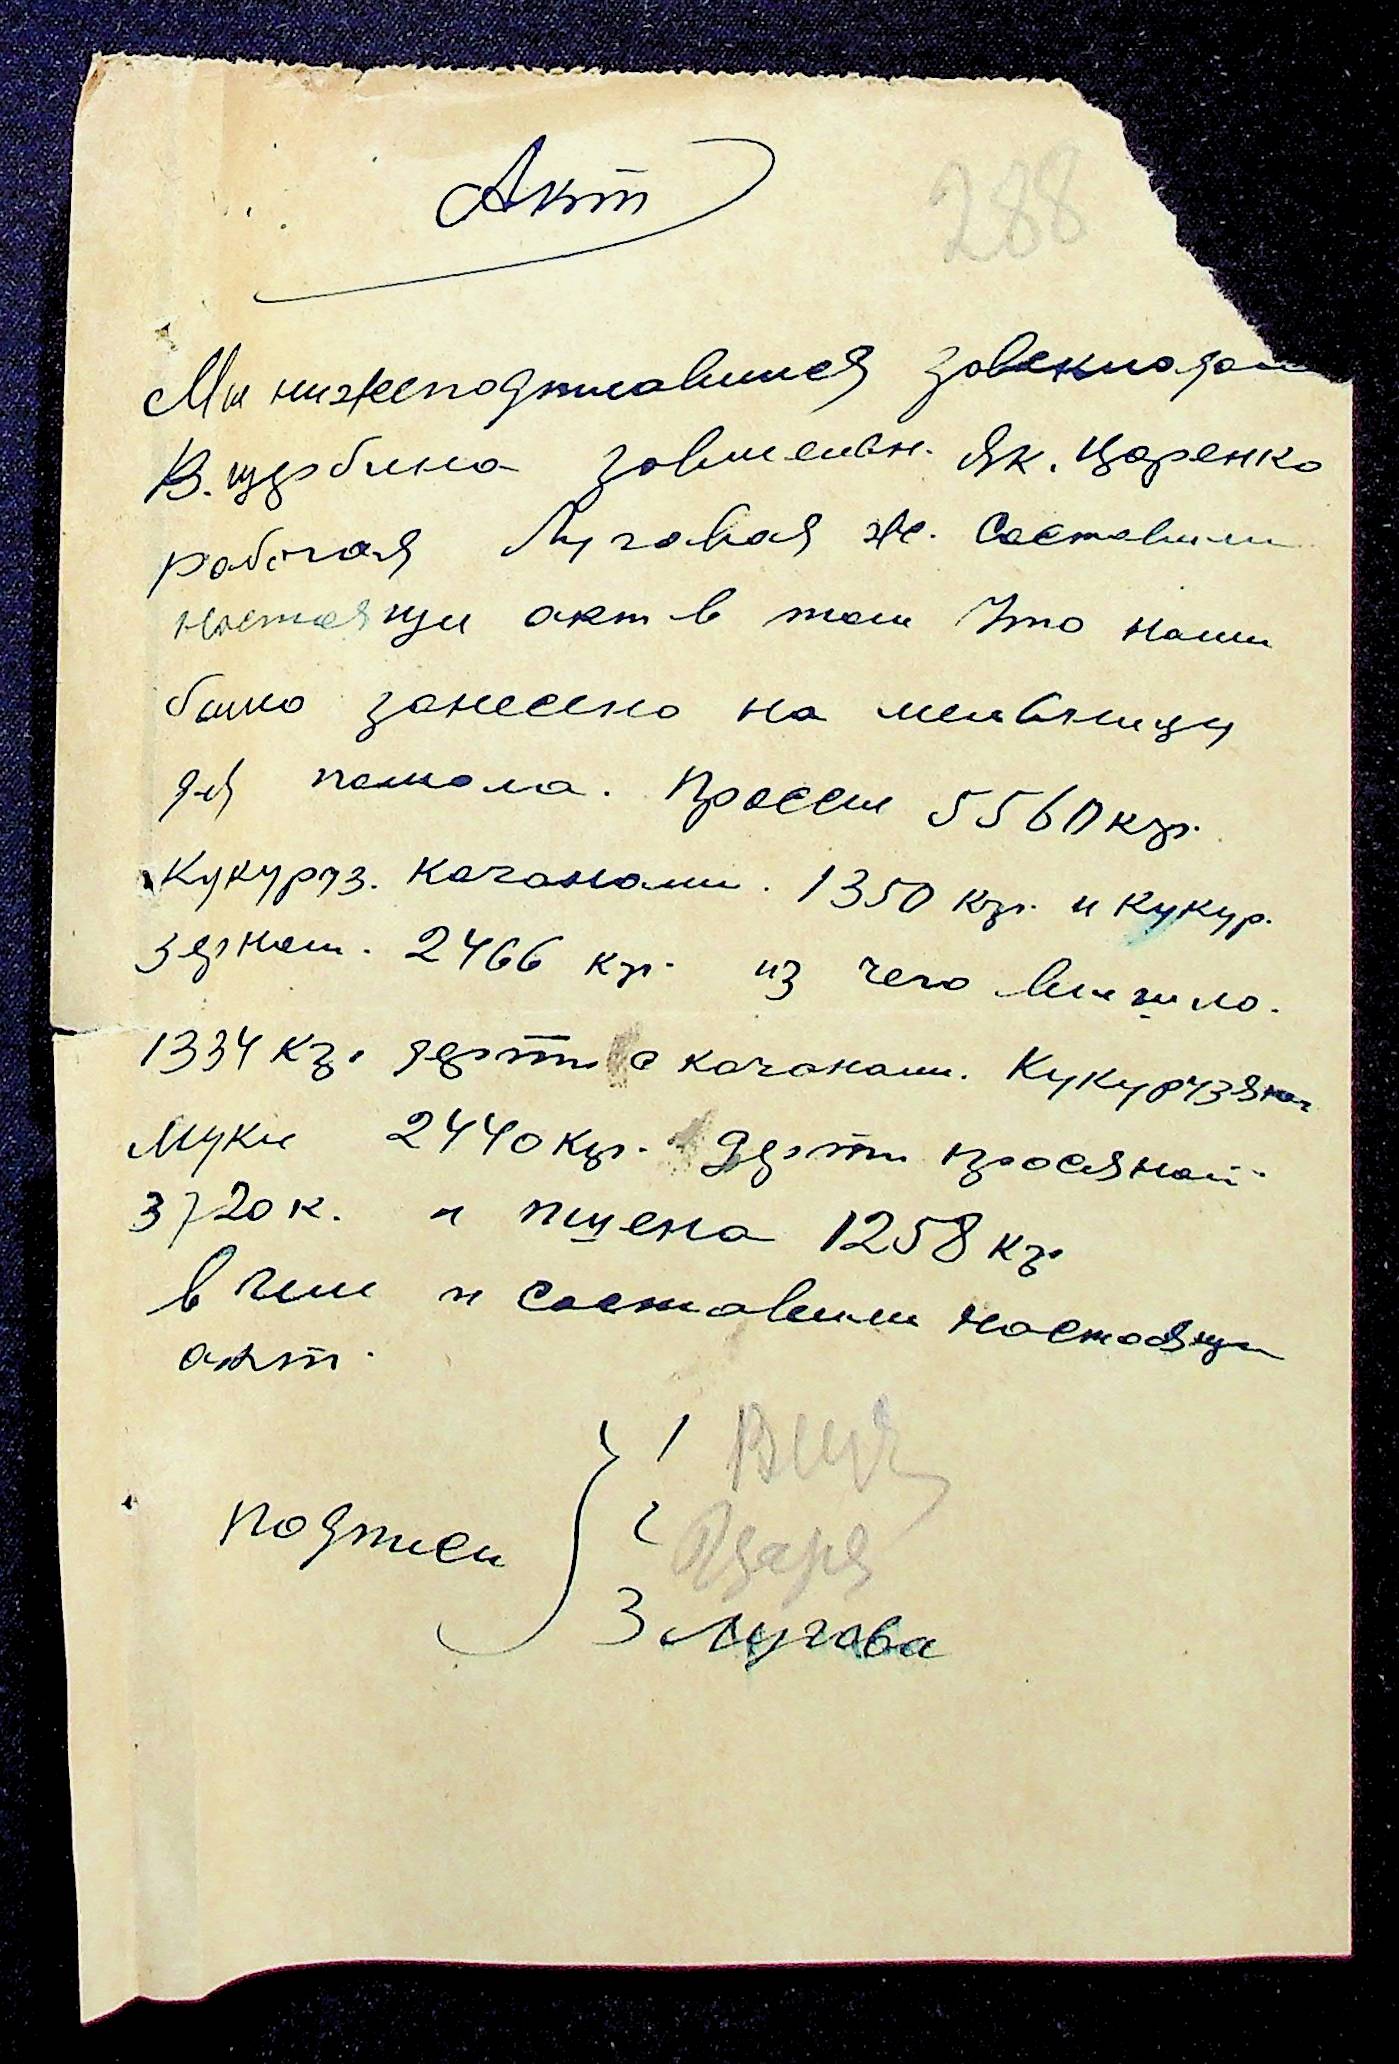 Акт
288
Мы нижеподписавшиеся завскладом
В. щербина завмельн. Як. Царенко
рабочая Луговая Ж. Составили
настоящи акт в том Что нами
было занесено на мельницу
для помола. Проссы 5560 кгр.
Кукуруз. качанами. 1350 кгр. и кукур.
зерном. 2466 кгр. из чего вышло.
1334 кгр. дерти с качанами. Кукурузяной
муки 2440 кгр. дерти просяной
3720 к. и пшена 1258 кгр
в чем и составили настоящи
акт.
подписи
1
2 Царе
3 Лугова